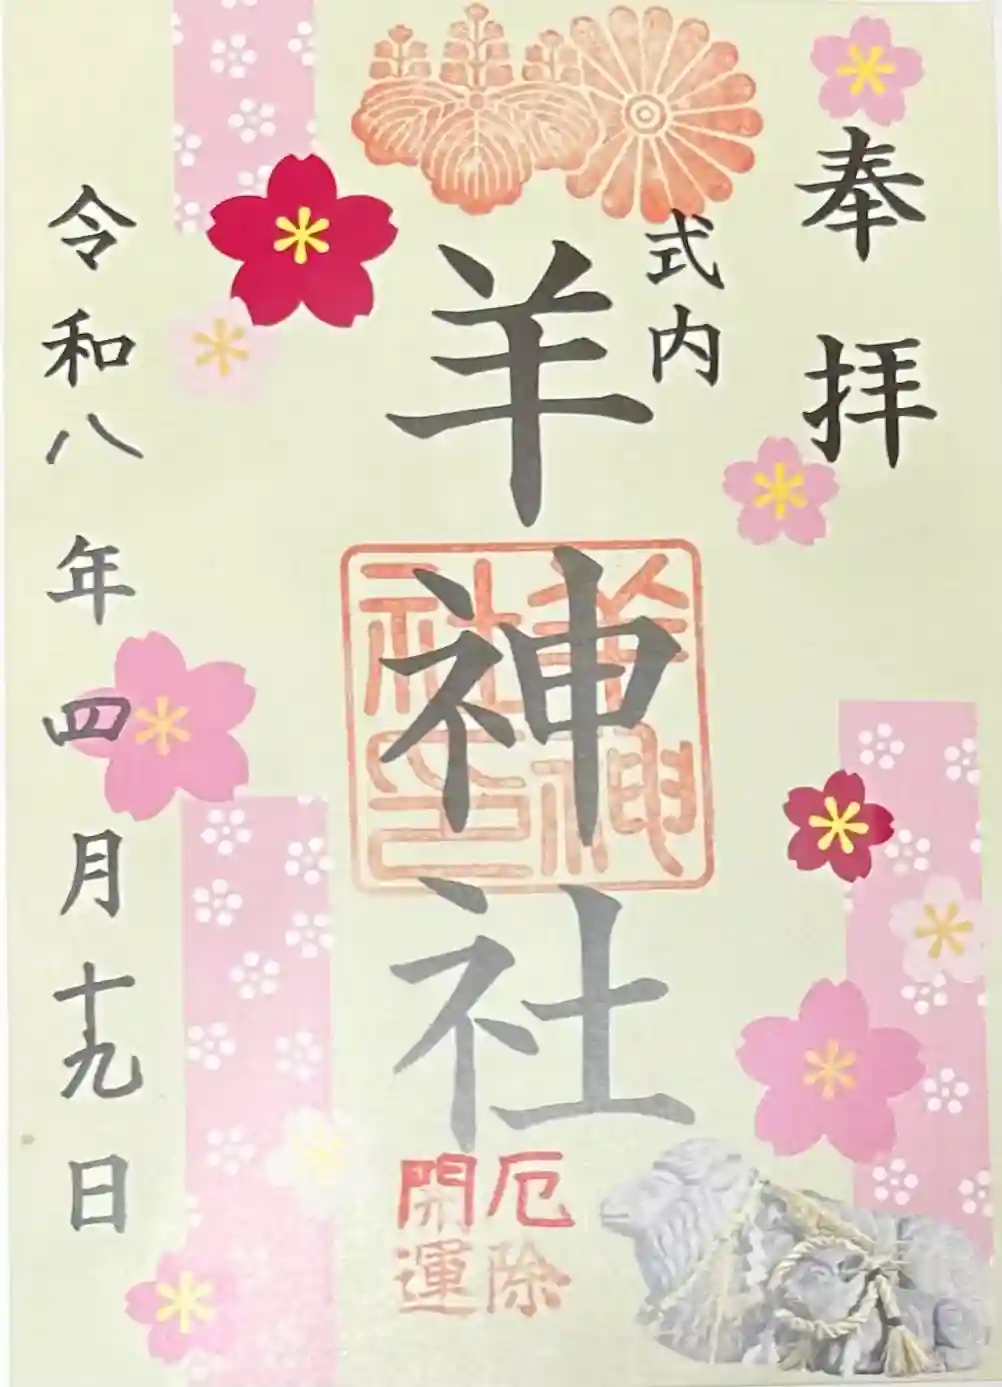 奉拝
式内
羊神社
羊神社印
厄除
開運
令和八年四月十九日